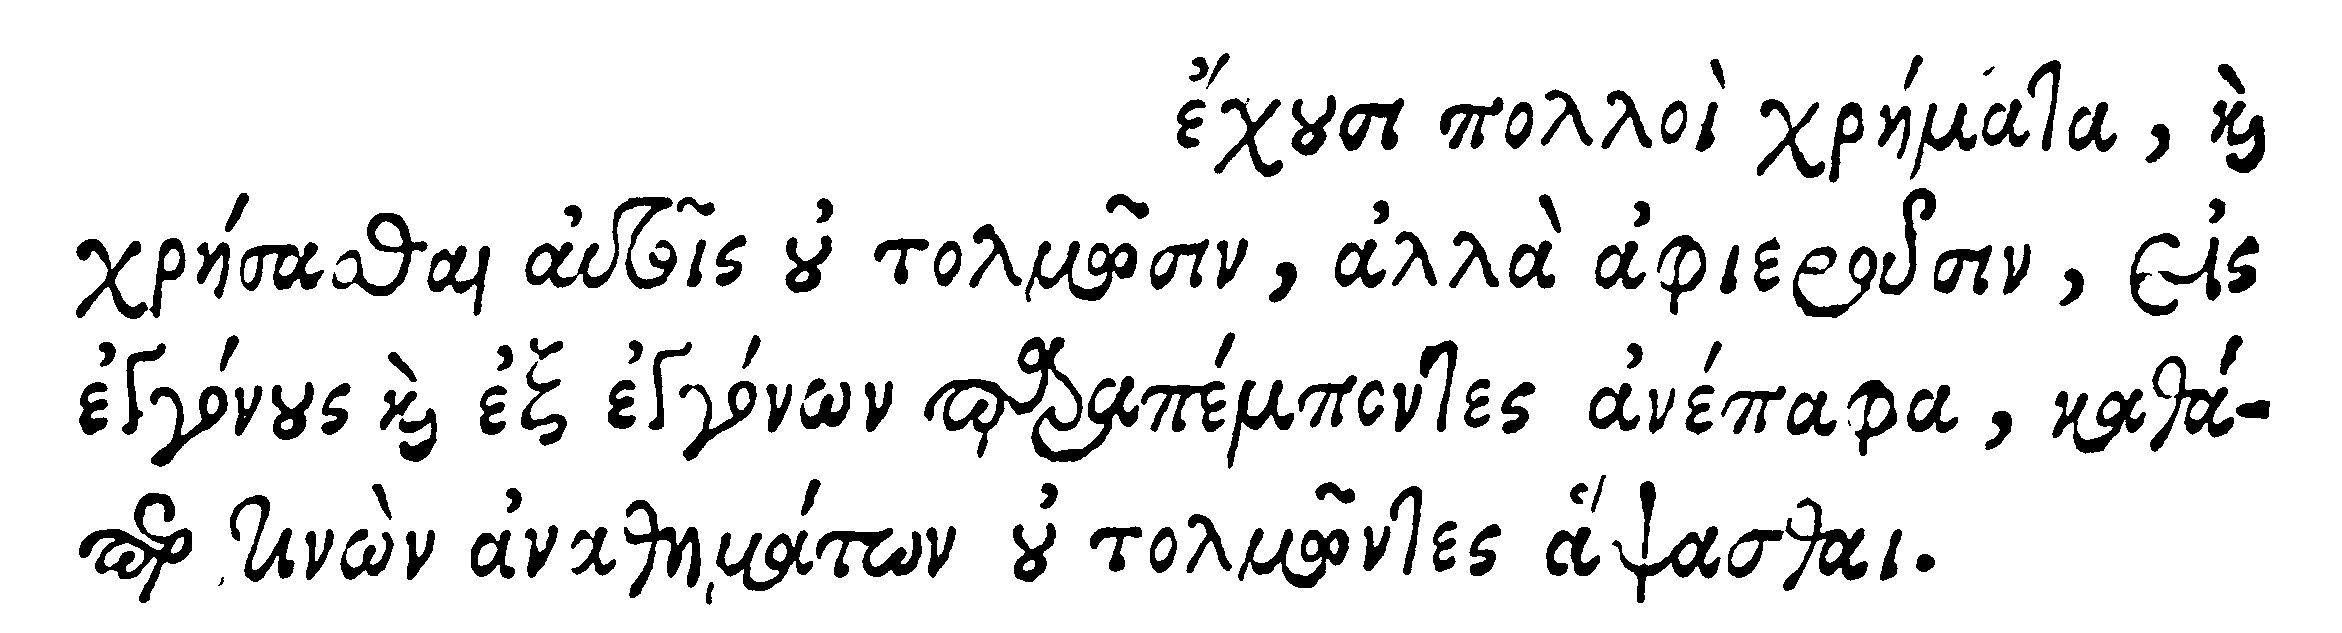 ἔχουσι πολλοὶ χρήματα, καὶ
χρήσασθαι αὐτοῖς οὐ τολμῶσιν, ἀλλὰ ἀφιεροῦσιν, εἰς
ἐγγόνους καὶ ἐξ ἐγγόνων παραπέμποντες ἀνέπαφα, καθά-
περ τινῶν ἀναθημάτων οὐ τολμῶντες ἅψασθαι.